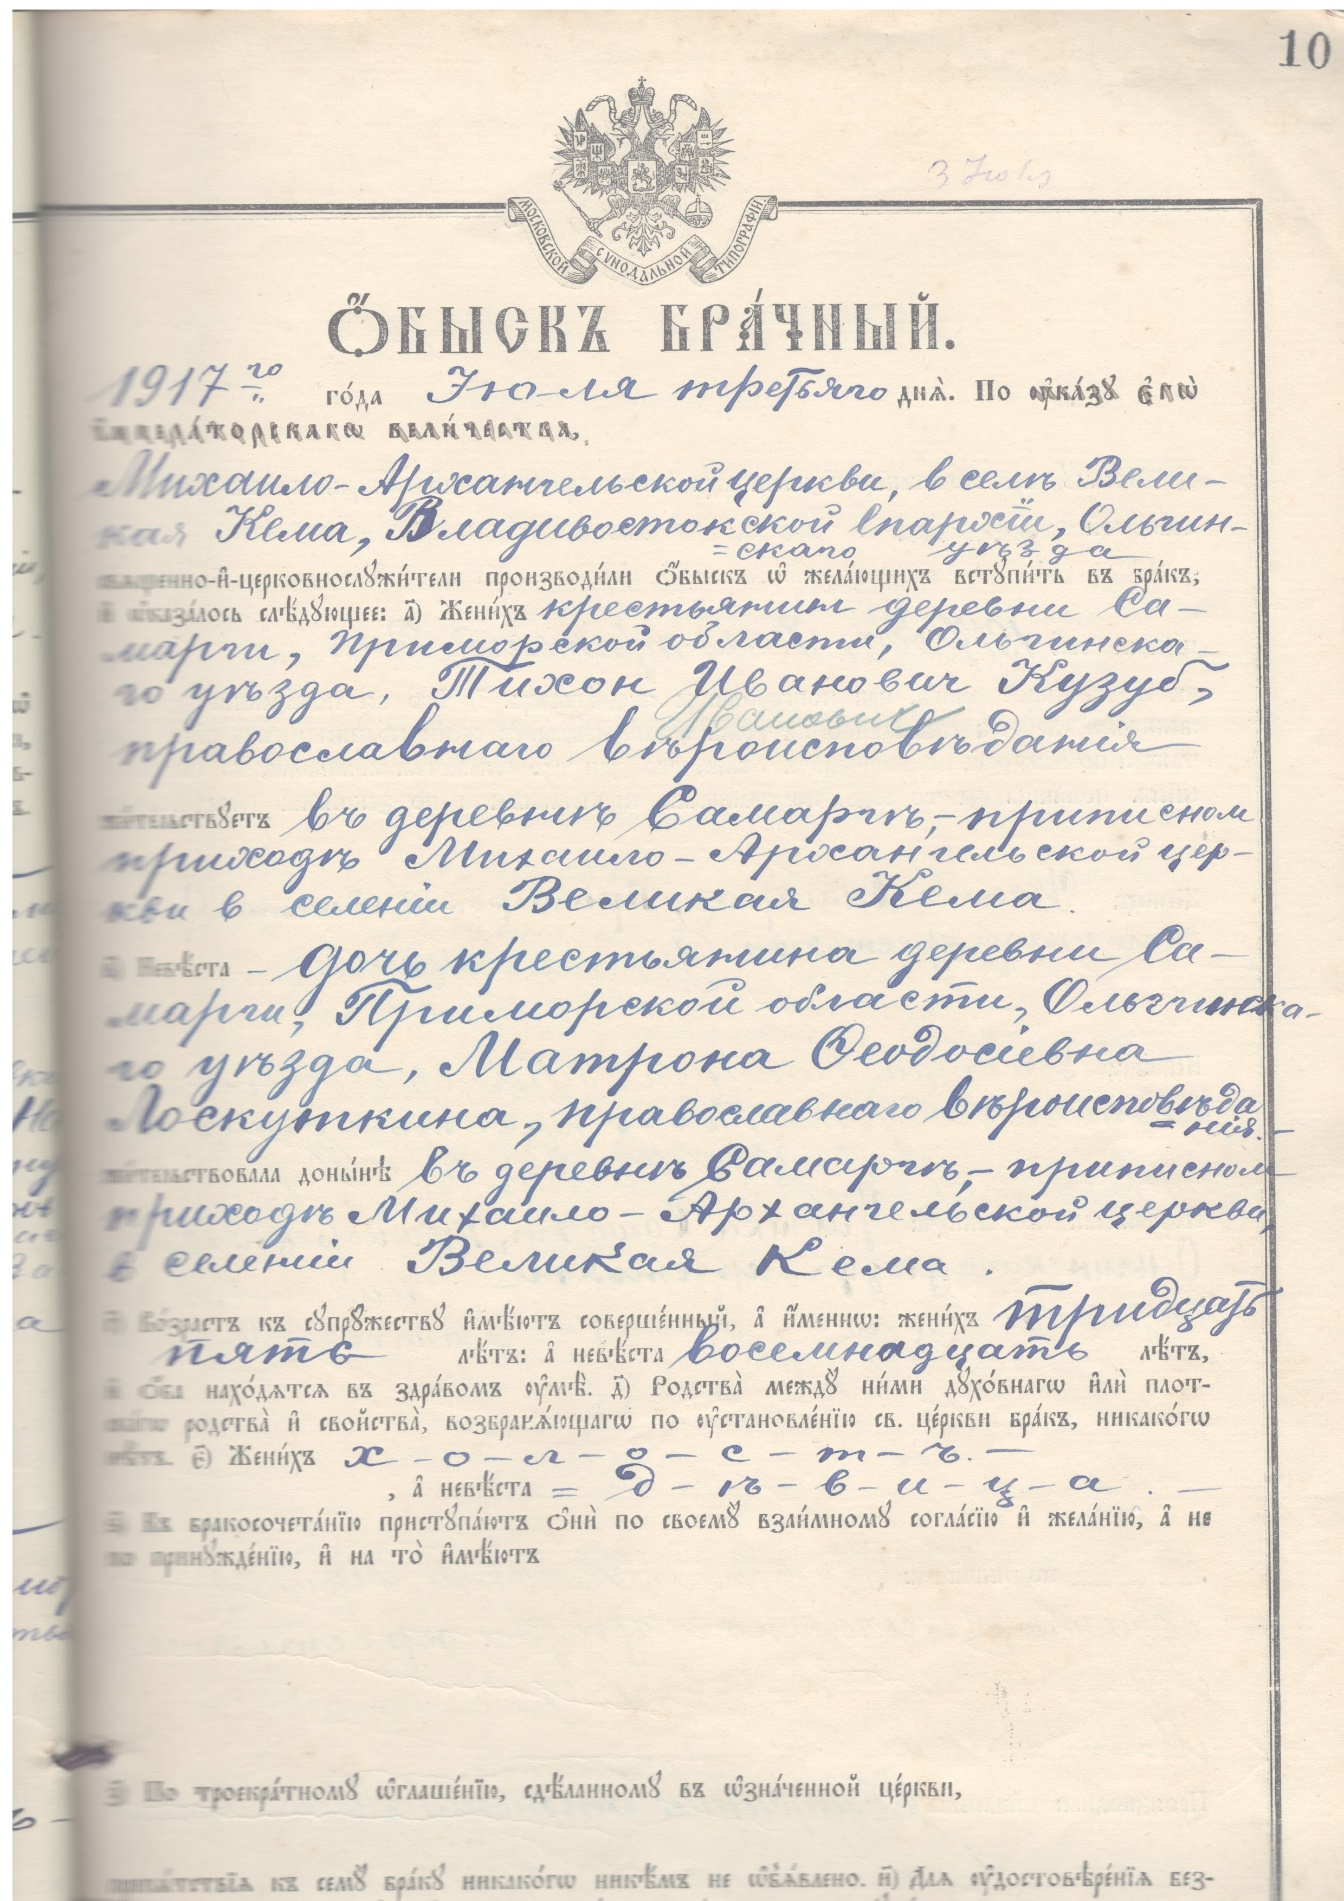 10
3 Июля
МОСКОВСКОЙ СѴНОДАЛЬНОЙ ТИПОГРАФІИ.
Ѻ҆́БЫСКЪ БРА́ЧНЫЙ.
1917го го́да Июля третьяго днѧ̀. По ᲂу҆ка́зꙋ є҆гѡ̀
і҆мпера́торскагѡ вели́чества,
Михаило-Архангельской церкви, в селѣ Вели-
кая Кема, Владивостокской епархіи, Ольгин-
=скаго уѣзда
свѧще́нно-и҆-церковнослꙋжи́тели производи́ли ѻ҆́быскъ ѡ҆ жела́ющихъ встꙋпи́ть въ бра́къ,
и҆ ѡ҆каза́лось слѣ́дꙋющее: а҃) Жени́хъ крестьянин деревни Са-
марги, Приморской области, Ольгинска-
го уѣзда, Тихон Иванович Кузуб,
Иванович
православнаго вѣроисповѣданія
жи́тельствꙋетъ въ деревнѣ Самаргѣ,- приписном
приходѣ Михаило-Архангельской цер-
кви в селеніи Великая Кема.
в҃) Невѣ́ста - дочь крестьянина деревни Са-
марги, Приморской области, Ольгинска-
го уѣзда, Матрона Ѳеодосіевна
Лоскуткина, православнаго вѣроисповѣда
=нія.-
жи́тельствовала доны́нѣ въ деревнѣ Самаргѣ,- приписном
приходѣ Михаило-Архангельской церкви,
в селеніи Великая Кема.
г҃) Во́зрастъ къ сꙋпрꙋ́жествꙋ и҆мѣ́ютъ соверше́нный, а҆ и҆́меннѡ: жени́хъ тридцать
пять лѣ́тъ: а҆ невѣ́ста восемнадцать лѣ́тъ,
и҆ ѻ҆́ба нахо́дѧтсѧ въ здра́вомъ ᲂу҆мѣ̀. д҃) Родства̀ междꙋ̀ ни́ми дꙋхо́внагѡ и҆лѝ плот-
ска́гѡ родства̀ и҆ сво́йства̀, возбранѧ́ющагѡ по ᲂу҆становле́нїю св. це́ркви бра́къ, никако́гѡ
нѣ́тъ. є҃) Жени́хъ х-о-л-о-с-т-ъ.-
, а҆ невѣ́ста = д-ѣ-в-и-ц-а.-
ѕ҃) Къ бракосочета́нїю пристꙋпа́ютъ ѻ҆нѝ по своемꙋ̀ взаи́мномꙋ согла́сїю и҆ жела́нїю, а҆ не
по принꙋжде́нїю, и҆ на то̀ и҆мѣ́ютъ
з҃) По троекра́тномꙋ ѡ҆глаше́нїю, сдѣ́ланномꙋ въ ѡ҆зна́ченной це́ркви,
препѧ́тствїѧ къ семꙋ̀ бра́кꙋ никако́гѡ никѣ́мъ не ѡ҆б̾ѧ́влено. и҃) Длѧ ᲂу҆достовѣре́нїѧ без-